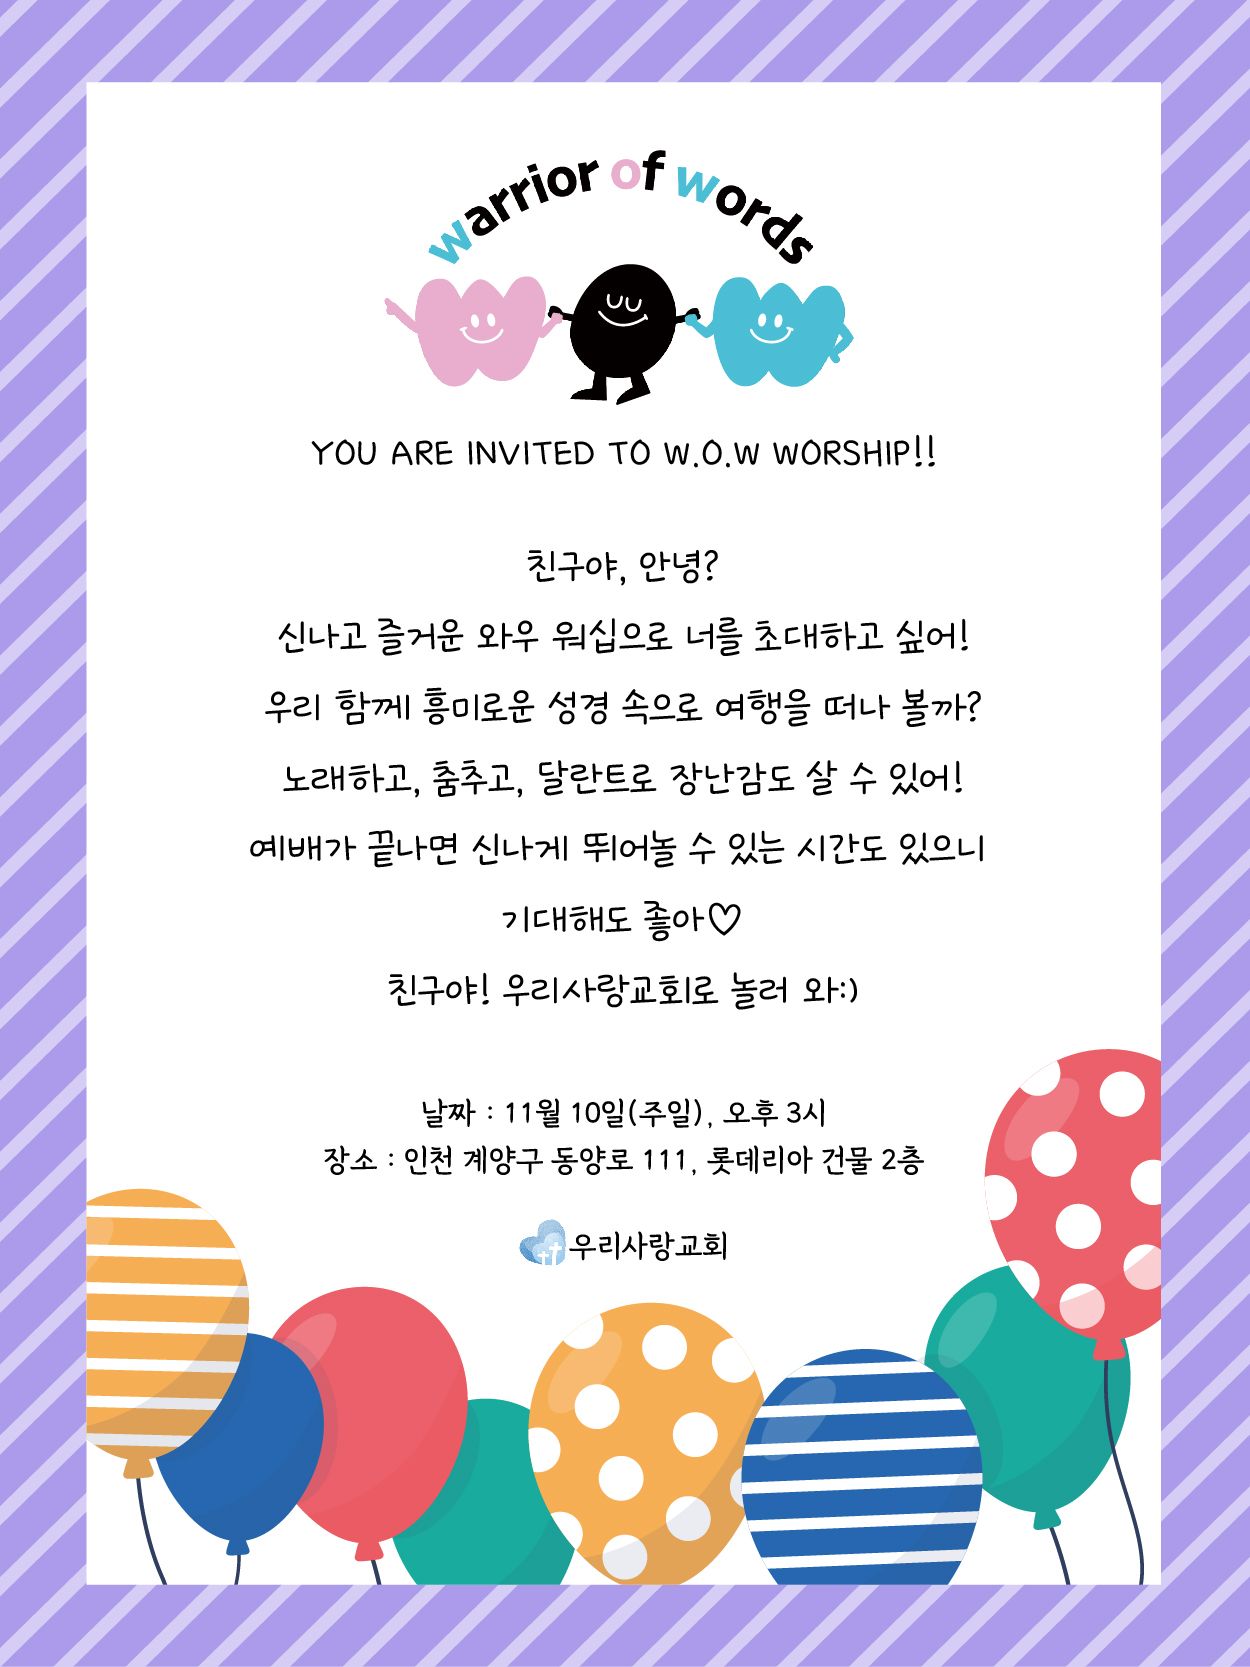 warrior of words
YOU ARE INVITED TO W.O.W WORSHIP!!
친구야, 안녕?
신나고 즐거운 와우 워십으로 너를 초대하고 싶어!
우리 함께 흥미로운 성경 속으로 여행을 떠나 볼까?
노래하고, 춤추고, 달란트로 장난감도 살 수 있어!
예배가 끝나면 신나게 뛰어놀 수 있는 시간도 있으니
기대해도 좋아♡
친구야! 우리사랑교회로 놀러 와:)
날짜 : 11월 10일(주일), 오후 3시
장소 : 인천 계양구 동양로 111, 롯데리아 건물 2층
우리사랑교회